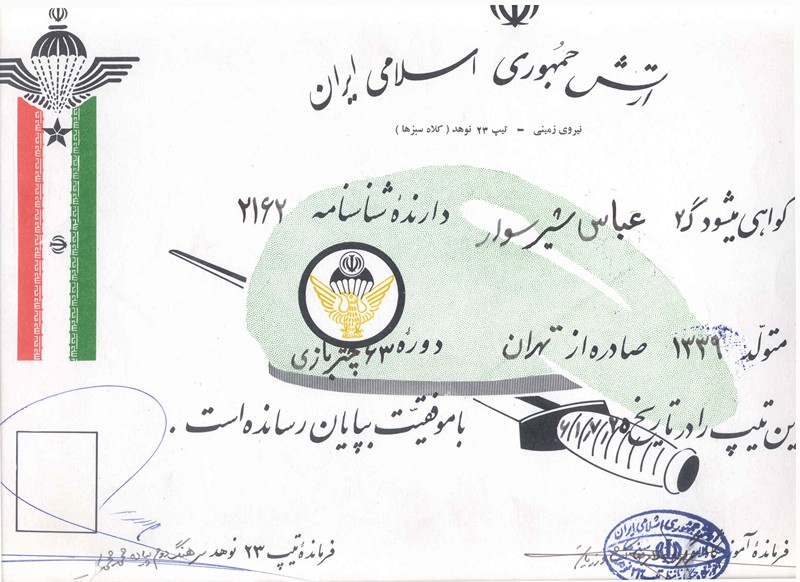 ارتش جمهوری اسلامی ایران
نیروی زمینی - تیپ ۲۳ نوهد (کلاه سبزها)
گواهی میشود گ۲ عباس شیرسوار دارندهٔ شناسنامه ۲۱۶۲
متولّد ۱۳۳۹ صادره از تهران دورهٔ ۶۳ چتربازی
ین تیپ را در تاریخ با موفقیّت بپایان رسانده است .
فرماندهٔ آموز
فرماندهٔ تیپ ۲۳ نوهد سرهنگ دوم پیاده
جمهوری اسلامی ایران